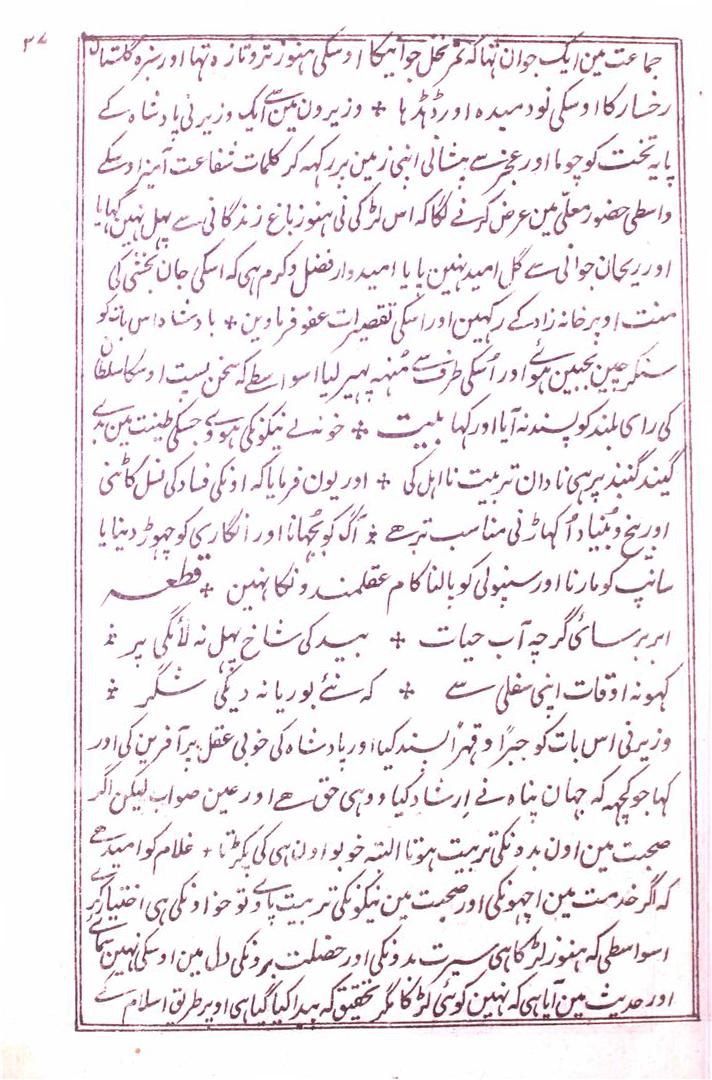 ۳۷
جماعت مین ایک جوان تہا کہ ثمر نخل جوانیکا اوسکی ہنوز تر و تازہ تہا اور سبزہ گلستان
رخسار کا اوسکی نو دمیدہ اور ڈہڈہا + وزیرون مین سے ایک وزیر نی پادشاہ کے
پایہ تخت کو چوما اور عجز سے پیشانی اپنی زمین پر رکہہ کر کلمات شفاعت آمیز اوسکے
واسطی حضور معلّی مین عرض کرنے لگا کہ اس لڑکی نی ہنوز باغ زندگانی سے پہل نہین کہایا
اور ریحان جوانی سے گل امید نہین پایا امیدوار فضل و کرم ہی کہ اسکی جان بخشی کی
منت اوپر خانہ زاد کے رکہین اور اسکی تقصیرات عفو فرماوین + بادشاہ اس بات کو
سنکر چین بجبین ہوئے اور اُسکی طرف سے مُنہہ پہیر لیا اسواسطے کہ سخن پست اوسکا سلطان
کی رای بلند کو پسند نہ آیا اور کہا بیت + خو نہ لے نیکو کی ہووے جسکی طینت مین بدے
گیند گنبد پر ہی نادان تربیت نا اہل کی + اور یون فرمایا کہ اونکی فساد کی نسل کاٹنی
اور بیخ و بُنیاد اُکہاڑنی مناسب تر ہے + آگ کو بُجہانا اور انگاری کو چہوڑ دینا یا
سانپ کو مارنا اور سنپولی کو پالنا کام عقلمندونکا نہین + قطعہ
ابر برسائی گرچہ آب حیات + بید کی شاخ پہل نہ لائگی پر +
کہو نہ اوقات اپنی سفلی سے + کہ نئے بوریا نہ دیگی شکر +
وزیر نی اس بات کو جبراً و قہراً پسند کیا اور پادشاہ کی خوبی عقل پر آفرین کی اور
کہا جو کچہہ کہ جہان پناہ نے اِرشاد کیا وہی حق ہے اور عین صواب لیکن اگر
صحبت مین اون بدونکی تربیت ہوتا البتہ خو بو اون ہی کی پکڑتا + غلام کو امید ہے
کہ اگر خدمت مین اچہونکی اور صحبت مین نیکونکی تربیت پاوے تو خو اونکی ہی اختیار کرے
اسواسطی کہ ہنوز لڑکا ہی سیرت بدونکی اور خصلت برونکی دل مین اوسکی نہین سمائے
اور حدیث مین آیا ہی کہ نہین کوئی لڑکا مگر تحقیق کہ پیدا کیا گیا ہی اوپر طریق اسلام کے